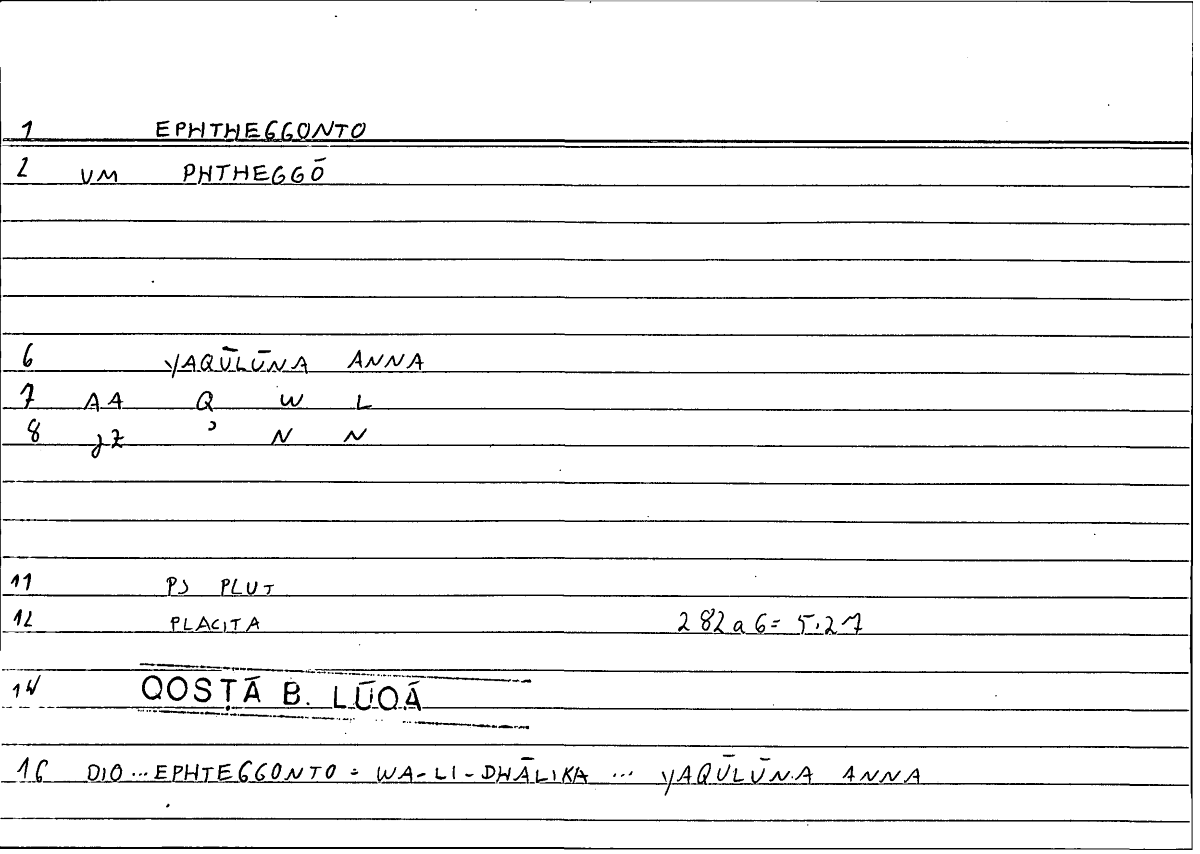 1 EPHTHEGGONTO
2 VM PHTHEGGŌ
6 YAQŪLŪNA ANNA
7 AA Q W L
8 JZ ʾ N N
11 PS PLUT
12 PLACITA 282a6= 5.2.7
14 QOSṬĀ B. LŪQĀ
16 DIO ... EPHTEGGONTO = WA-LI-DHĀLIKA ... YAQŪLŪNA ANNA